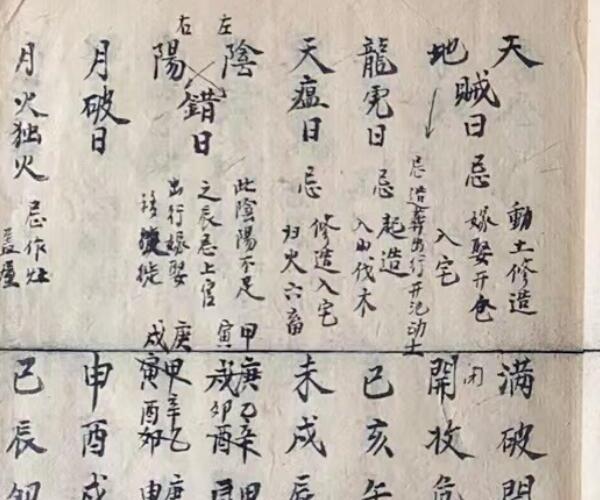 天地賊日 忌 動土修造 嫁娶開仓 入宅
忌造葬出行开池动土
龍虎日 忌 起造 入山伐木
天瘟日 忌 修造入宅 归火六畜
左 右
陰陽錯日 此陰陽不足 之辰忌上官 出行嫁娶 移徙
月破日
月火独火 忌作灶 盖屋
满破開
闭
開收危
己亥午
未戌辰
甲寅 庚戌 乙卯 辛酉
庚戌 甲寅 辛酉 乙卯
申酉戌
己辰卯